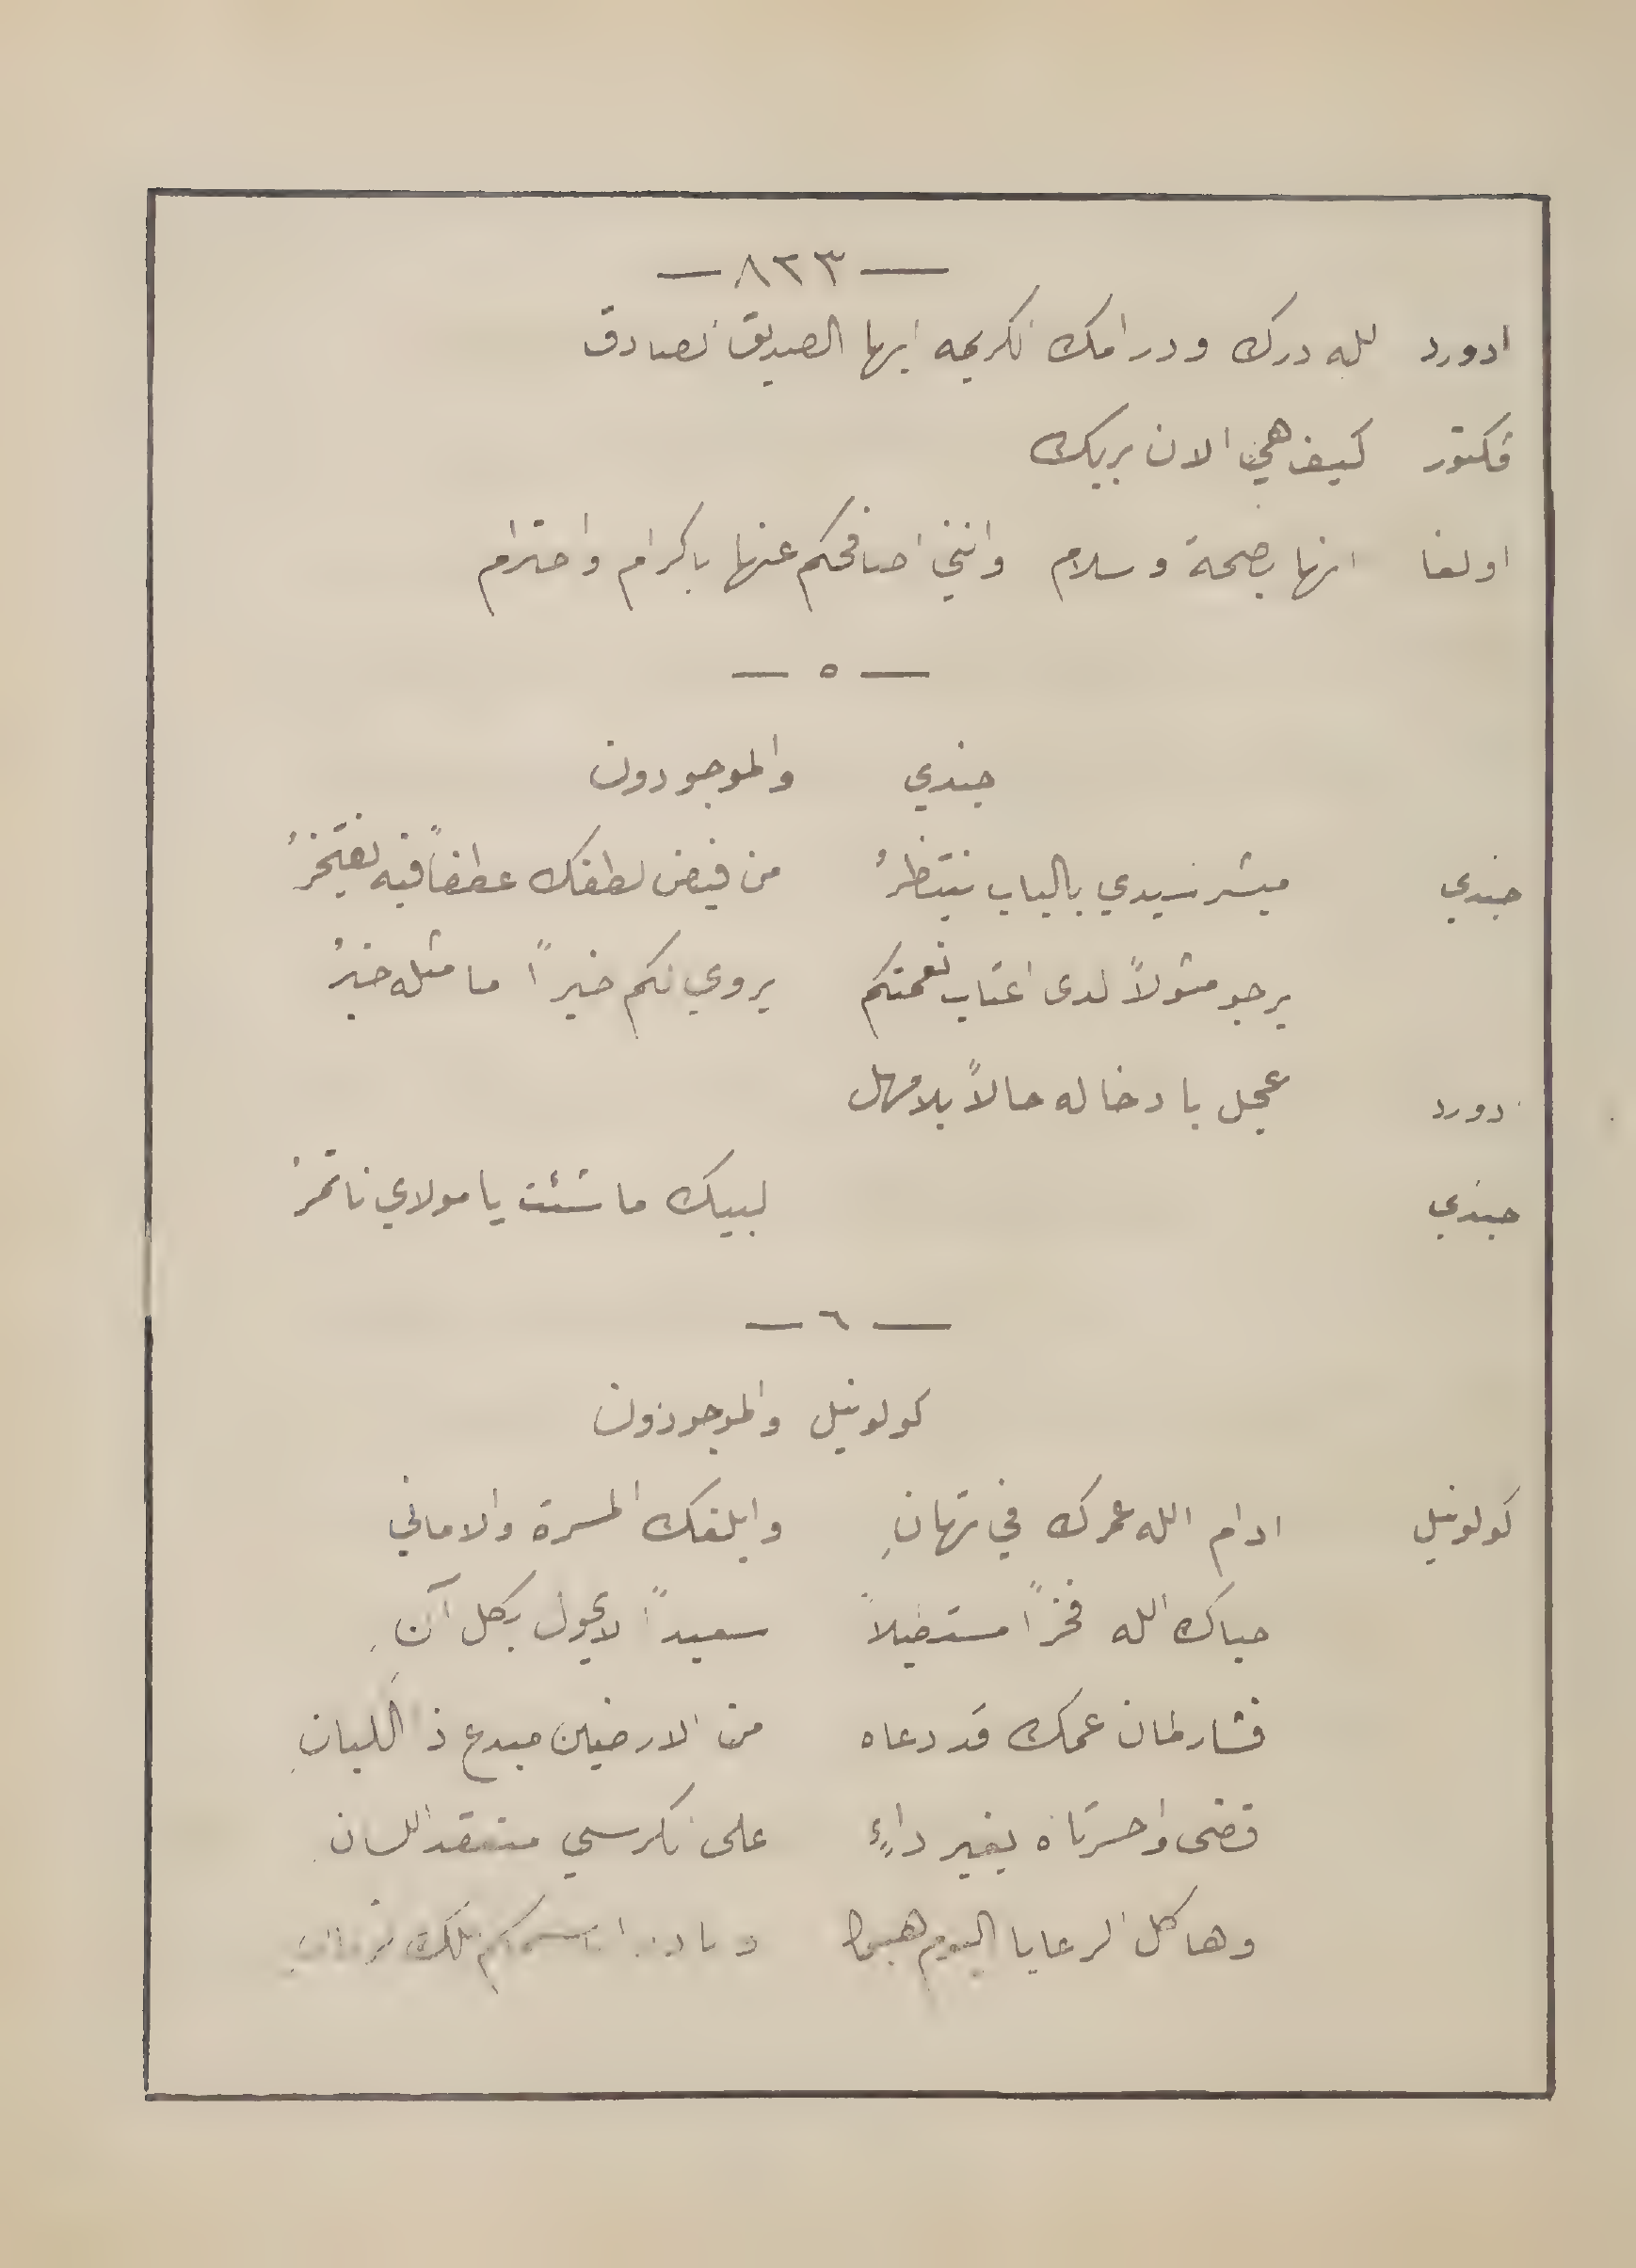 — ٨٢٣ —
ادورد لله درك ودر امك الكريمه ايها الصديق الصادق
فكتور كيف هي الان بربك
اولغا انها بصحة وسلام وانني اصافحكم عنها باكرام واحترام
— ٥ —
جندي والموجودون
جندي مبشر سيدي بالباب ينتظرُ من فيض لطفك عطفاً فيه يفتخرُ
يرجو مثولاً لدى اعتاب نعمتكم يروي لكم خبراً ما مثله خبرُ
ادورد عجل بادخاله حالاً بلا مهل
جندي لبيك ما شئت يا مولاي نأتمرُ
— ٦ —
كولونيل والموجودون
كولونيل ادام الله عمرك في تهانِ وابلغك المسرة والاماني
حباك الله فخراً مستطيلاً سعيداً لا يحول بكل آنِ
فشارلمان عمك قد دعاه من الارضين مبدع ذا الكيانِ
قضى واحسرتاه بغير داءٍ على الكرسي منعقد اللسانِ
وها كل الرعايا اليوم هبوا